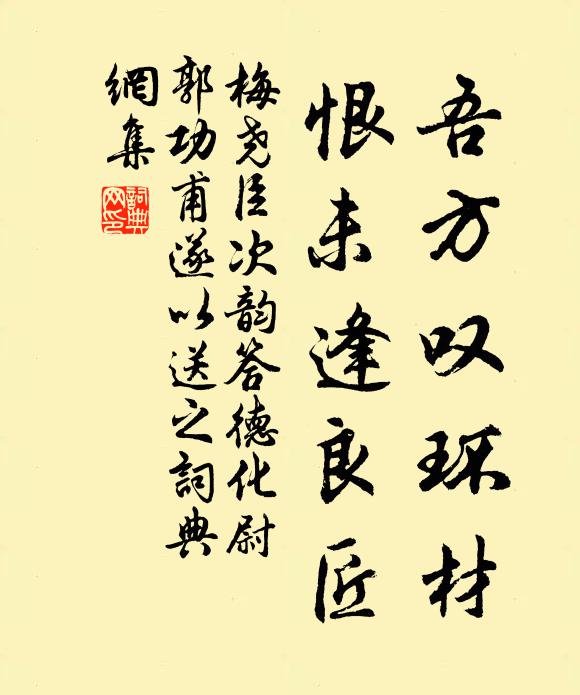 吾方叹环材
恨未逢良匠
梅尧臣次韵答德化尉
郭功甫遂以送之词典
網集
詞典网印